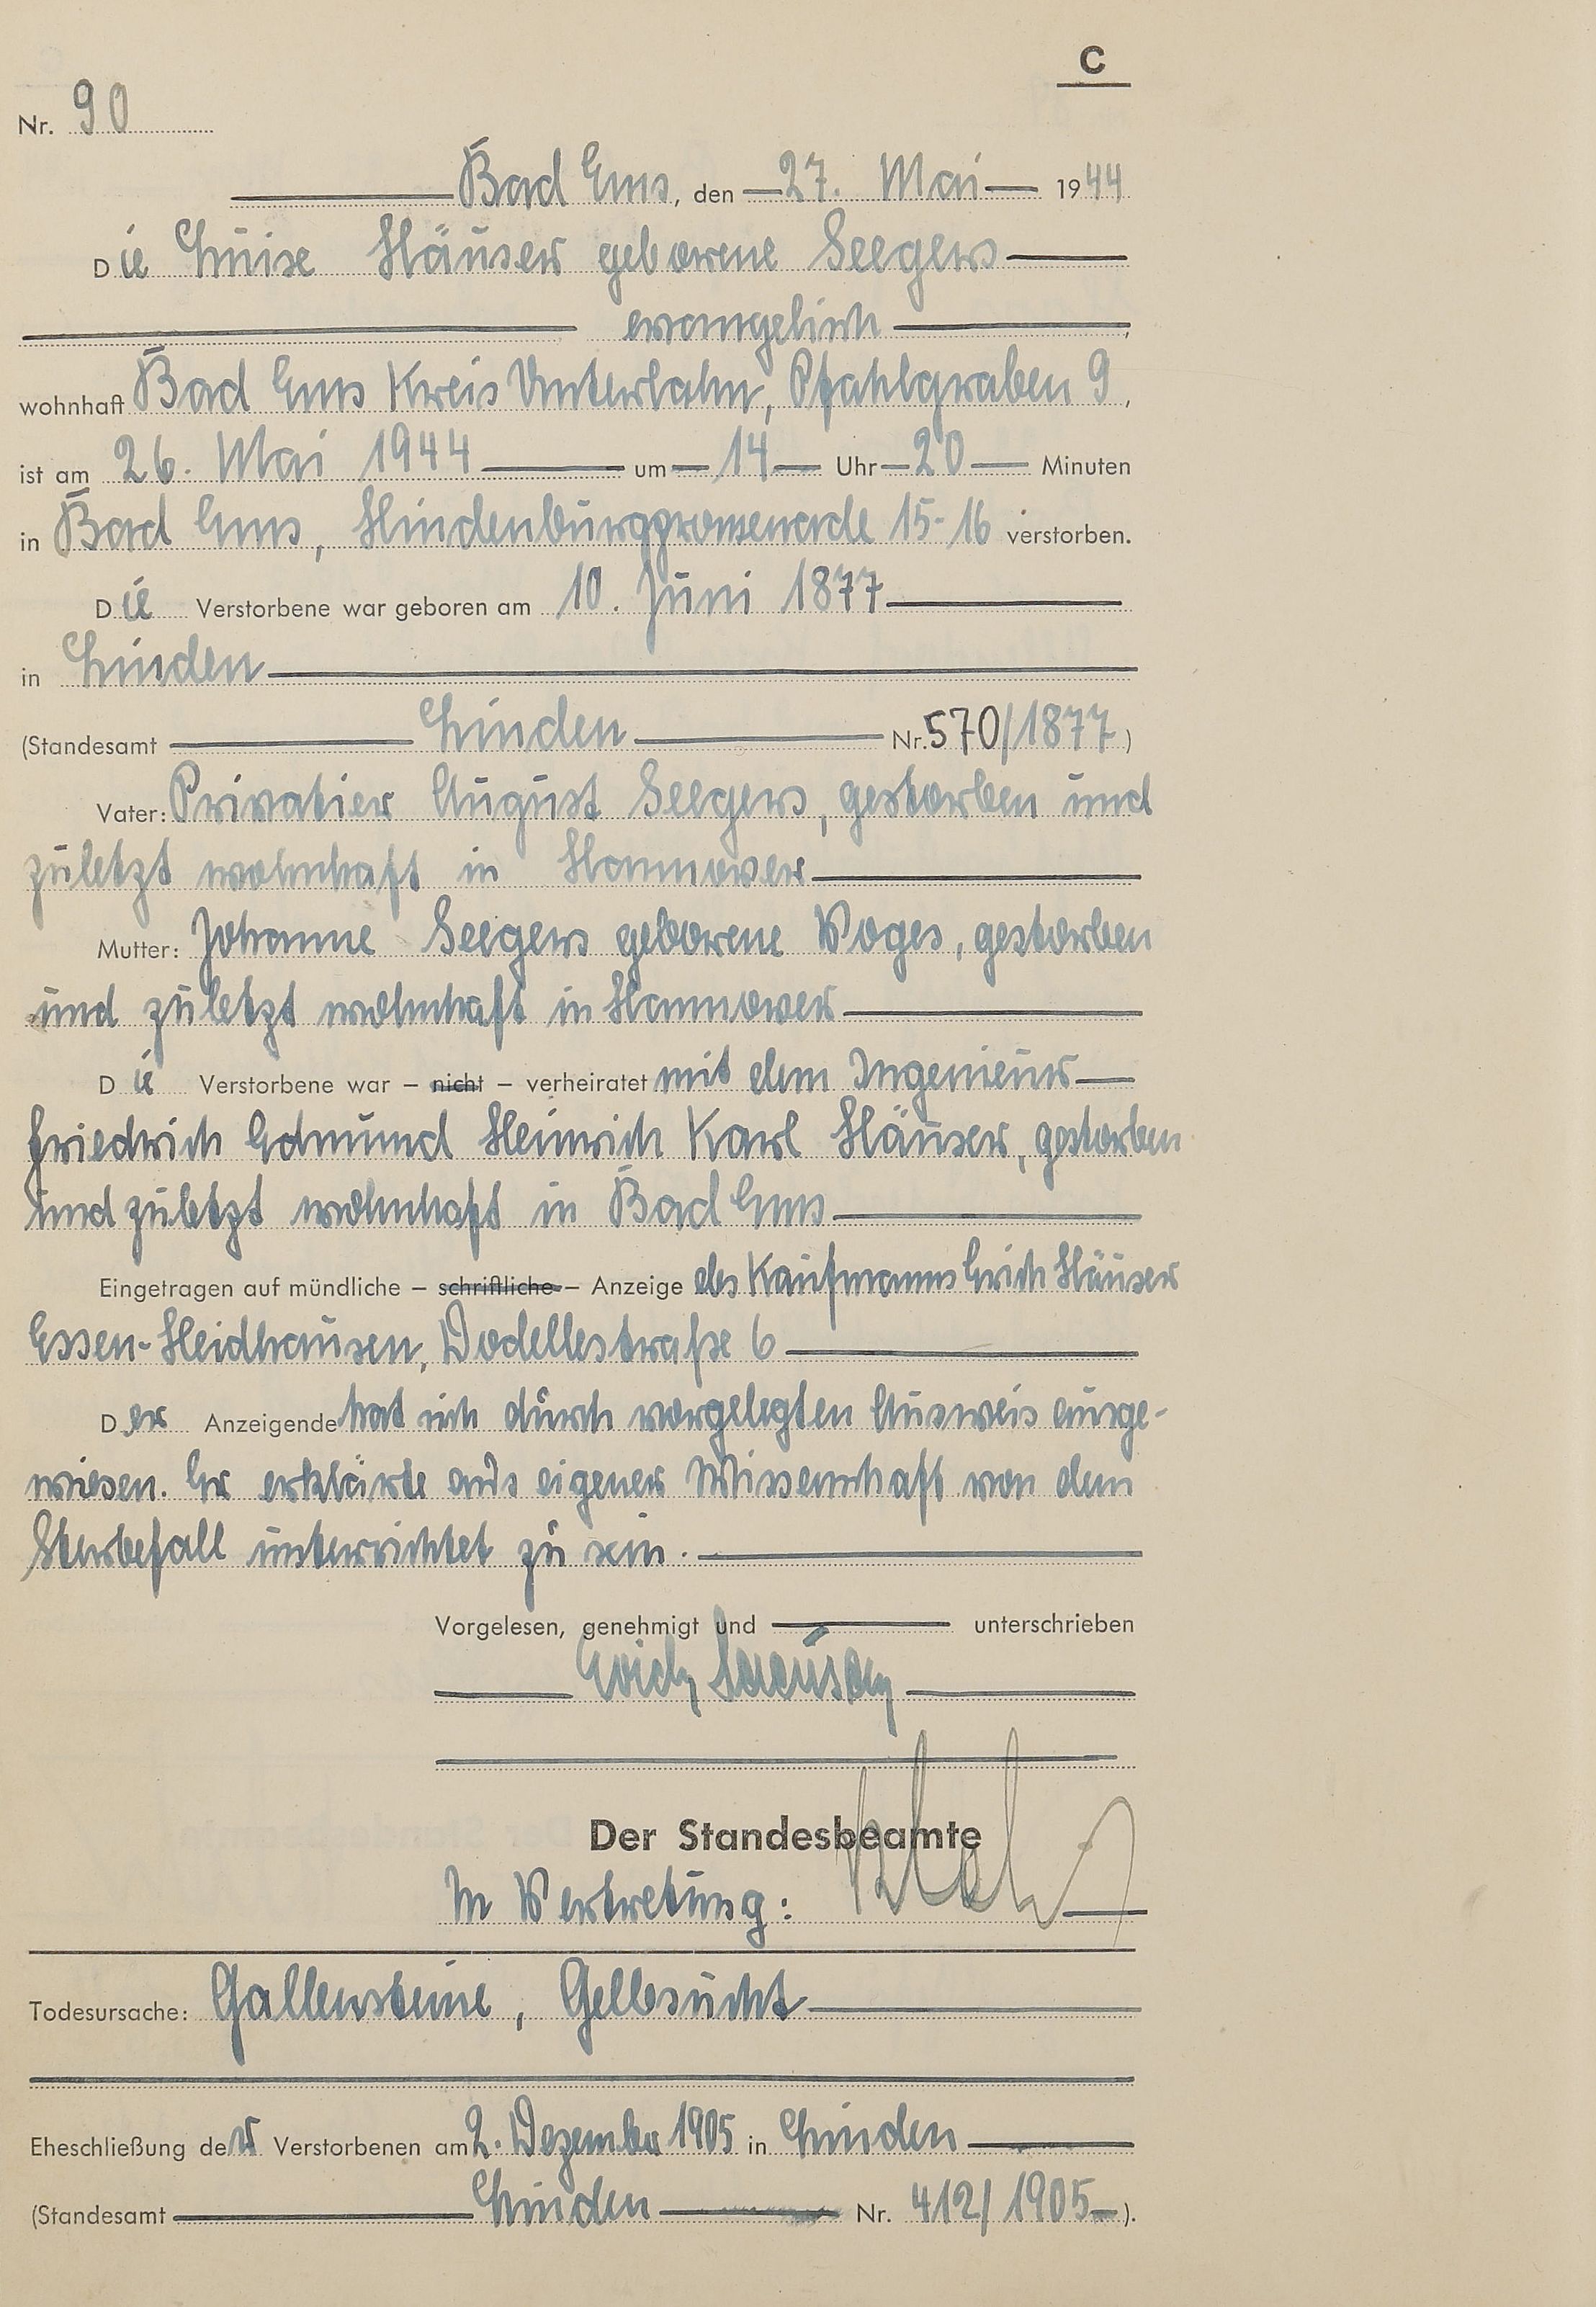 C
Nr. 90
Bad Ems, den 27. Mai 1944
Die Luise Häuser geborene Seegers
evangelisch
wohnhaft Bad Ems Kreis Unterlahn, Pfahlgraben 9,
ist am 26. Mai 1944 um 14 Uhr 20 Minuten
in Bad Ems, Hindenburgpromenade 15-16 verstorben.
Die Verstorbene war geboren am 10. Juni 1877
in Linden
(Standesamt Linden Nr. 570/1877)
Vater: Privatier August Seegers, gestorben und
zuletzt wohnhaft in Hannover
Mutter: Johanne Seegers geborene Voges, gestorben
und zuletzt wohnhaft in Hannover
Die Verstorbene war – nicht – verheiratet mit dem Ingenieur
Friedrich Edmund Heinrich Karl Häuser, gestorben
und zuletzt wohnhaft in Bad Ems
Eingetragen auf mündliche – schriftliche – Anzeige des Kaufmanns Erich Häuser
Essen-Heidhausen, Dodellestraße 6
Der Anzeigende hat sich durch vorgelegten Ausweis ausge-
wiesen. Er erklärte aus eigener Wissenschaft von dem
Sterbefall unterrichtet zu sein.
Vorgelesen, genehmigt und unterschrieben
Erich Haeuser
Der Standesbeamte
In Vertretung:
Todesursache: Gallensteine, Gelbsucht
Eheschließung der Verstorbenen am 2. Dezember 1905 in Linden
(Standesamt Linden Nr. 412/1905).